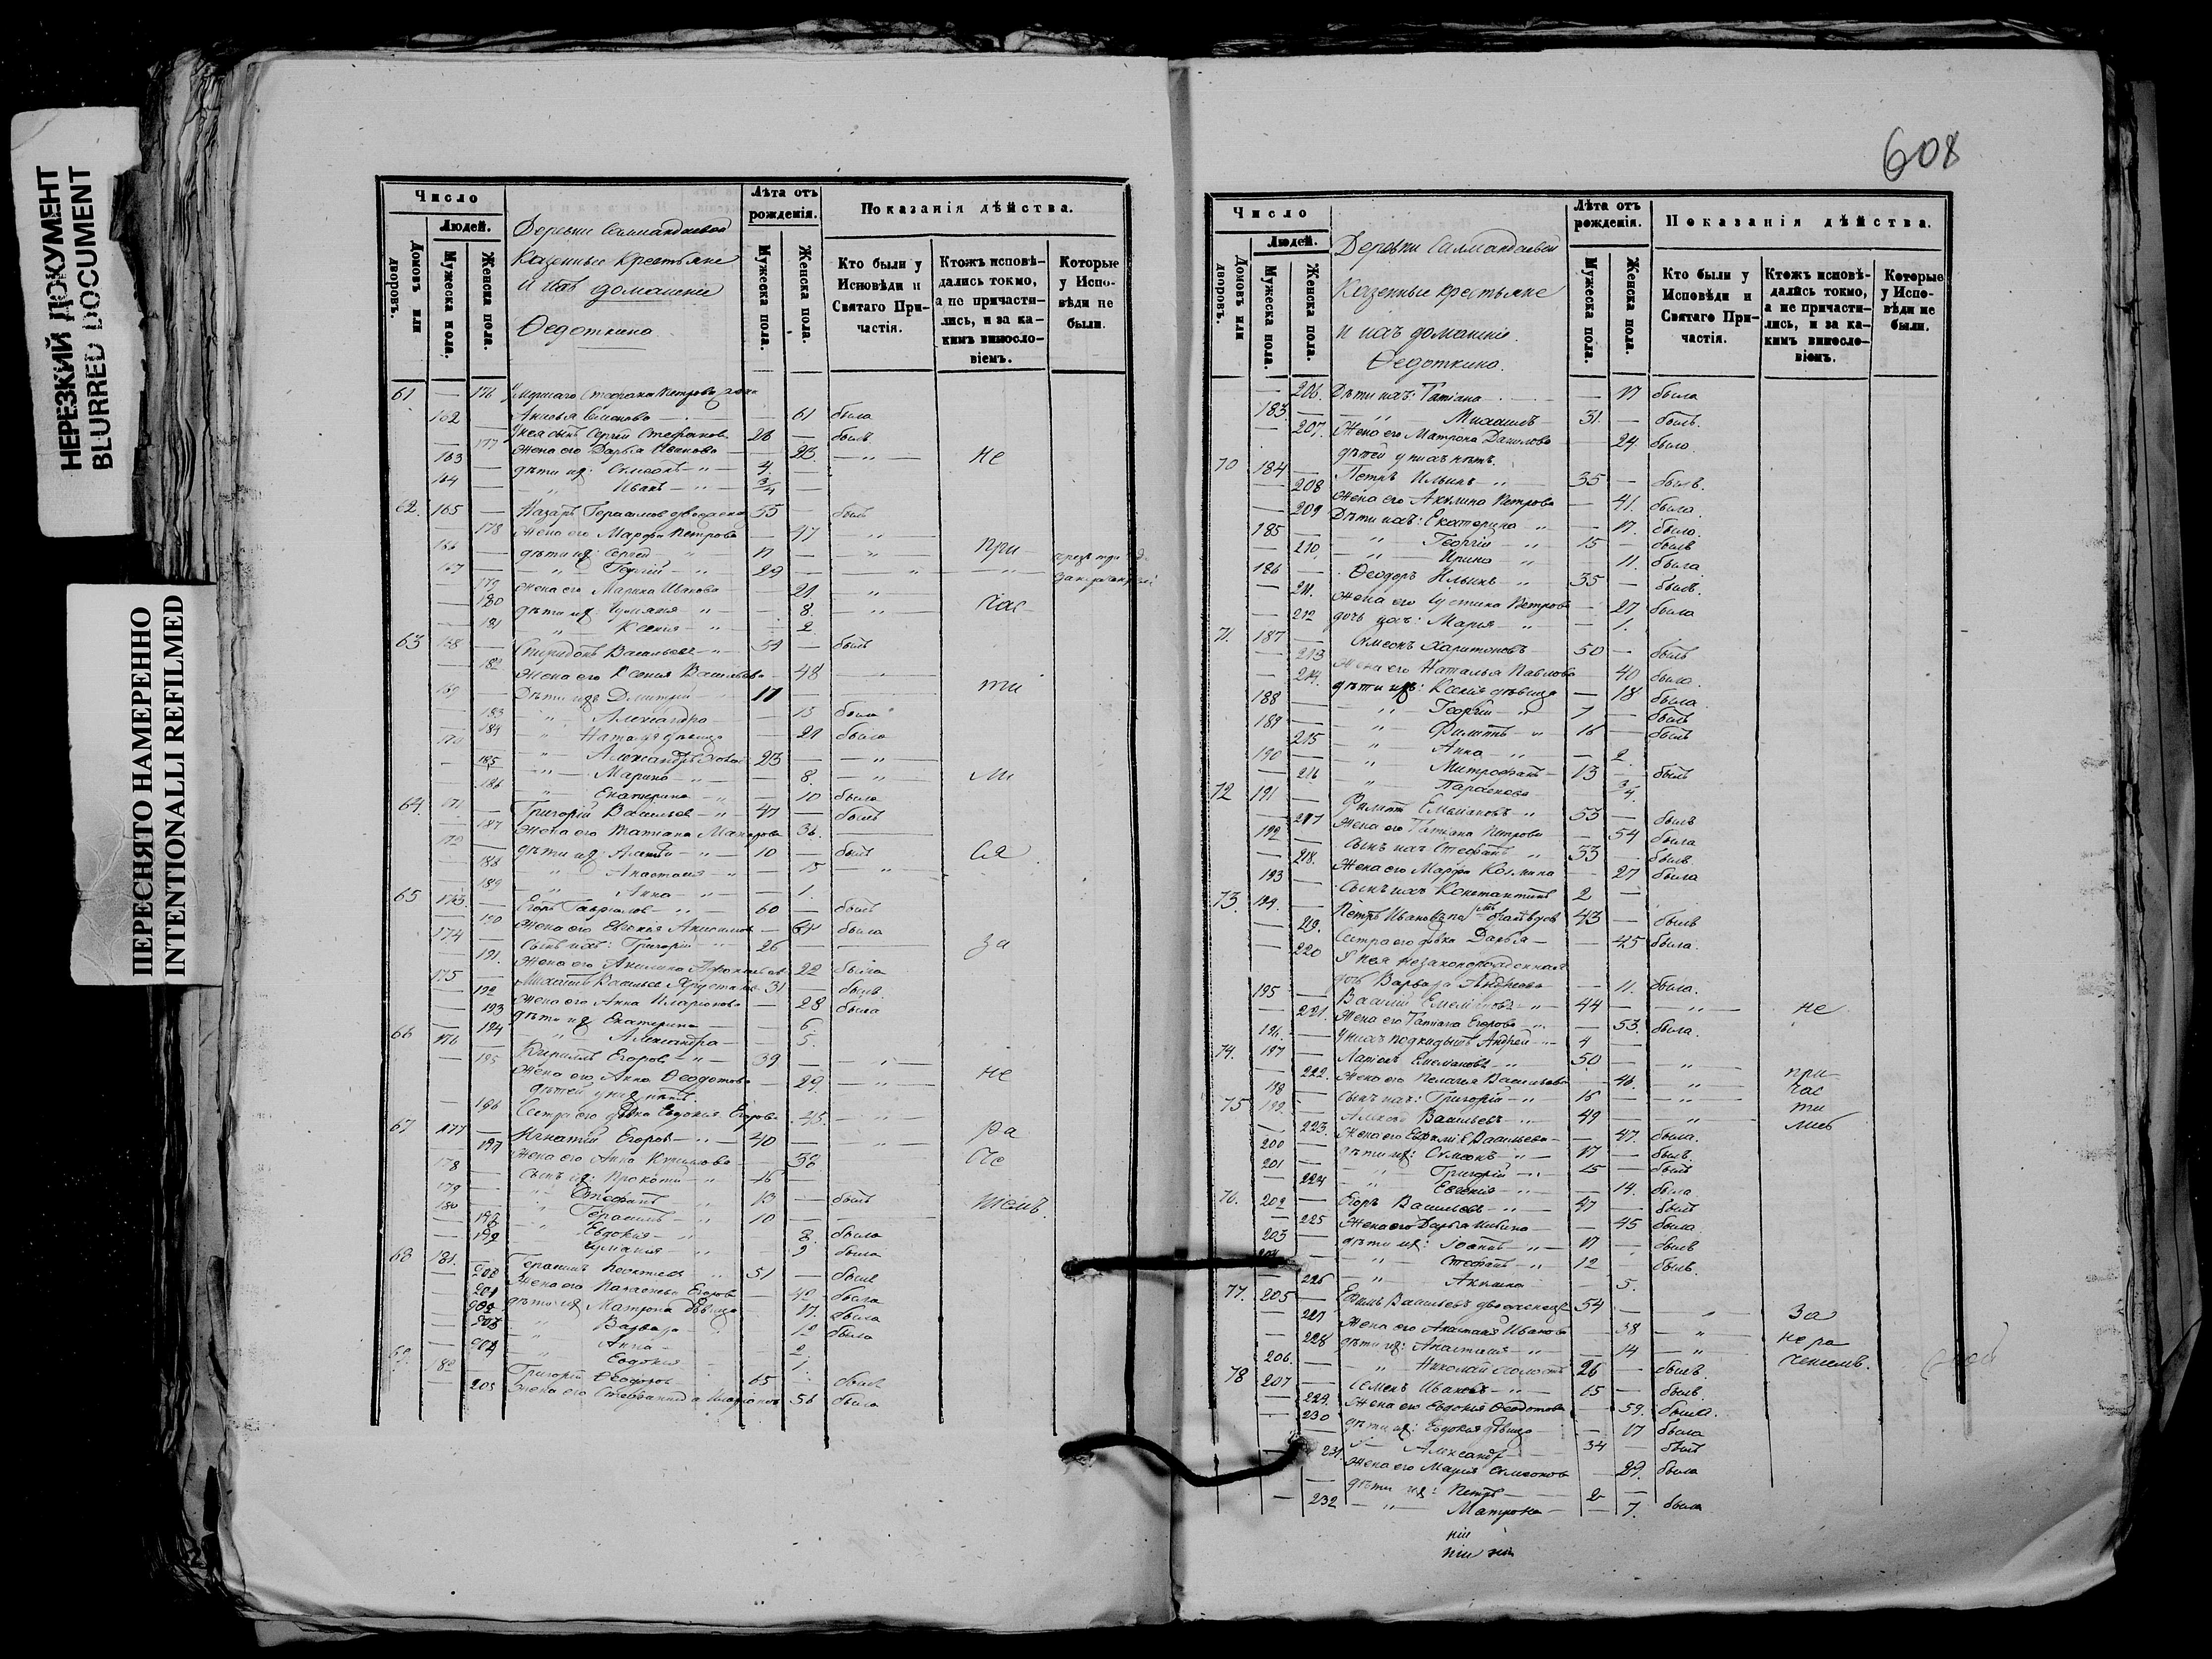 НЕРЕЗКИЙ ДОКУМЕНТ
BLURRED DOCUMENT
ПЕРЕСНЯТО НАМЕРЕННО
INTENTIONALLI REFILMED
Число
Людей.
Домовъ или дворовъ.
Мужеска пола.
Женска пола.
Деревни
Казенные крестьяне
и ихъ домашние
Федоткина
Лѣта отъ рожденія.
Мужеска пола.
Женска пола.
Показанія дѣйства.
Кто были у Исповѣди и Святаго Причастія.
Ктожъ исповѣдались токмо, а не причастились, и за какимъ винословіемъ.
Которые у Исповѣди не были.
61 — 176 Умершаго Стефана Петрова жена
— 61 была
162 — сынъ Сергей Стефановъ 28 — былъ
— 177 жена его Дарья Иванова — 23 — не
163 — дѣти их: Симеонъ 4
164 — Иванъ 3/4
62. 165 — Назаръ Герасимовъ 55 — былъ
— 178 Жена его Марфа Петрова — 47
166 — дѣти их: Сергей 17 — при
167 — Георгій 29
— 179 жена его Марина Иванова — 21
— 180 дѣти их: — 8 час
— 181 Ксенія — 2
63 168 — Спиридонъ Васильевъ 54 — былъ
— 182 Жена его Ксенія Васильева — 48
169 — Дѣти их: Дмитрій 11 — ти
— 183 Александра — 15 была
— 184 Наталья дѣвица — 21 была
170 — Александръ 23
— 185 Марина — 8 ли
— 186 Екатерина — 10 была
64. 171 — Григорій Васильевъ 47 — былъ
— 187 Жена его Татиана — 36
172 — дѣти их: 10 — былъ ся
— 188 Анастасія — 15
— 189 Анна — 1
65 173 — Егоръ Гавриловъ 60 — былъ
— 190 Жена его Евгенія — 64 была
174 — Сынъ ихъ: Григорій 26 — за
— 191 Жена его Акилина — 22 была
175 — Михаилъ Васильев 31 — былъ
— 192 Жена его Анна Иларионова — 28 была
— 193 дѣти их: Екатерина — 6
— 194 Александра — 5
66 176 — Кириллъ Егоровъ 39
— 195 Жена его Анна Феодотова — 29 не
дѣтей у них нѣтъ.
— 196 Сестра его дѣвка Евдокія Егорова 45
67 177 — Игнатій Егоровъ 40 — ра
— 197 жена его Анна Кириллова — 38 че
178 — сынъ их: Прокопій 16
179 — Стефанъ 13 — былъ
180 — Герасимъ 10 — ніемъ.
— 198 Евдокія — 8 была
— 199 — 9 была
68 181. — Герасимъ 51 — былъ
— 200 Жена его Параскева Егорова — 42 была
— 201 дѣти их: Матрона дѣвица — 17 была
— 202 Варвара — 12 была
— 203 Анна — 2
— 204 Евдокія — 1
69. 182 — Григорій Феодоровъ 65 — былъ
— 205 Жена его Стефанида Иларіонова 56 была
608
Число
Людей.
Домовъ или дворовъ.
Мужеска пола.
Женска пола.
Деревни
Казенные крестьяне
и ихъ домашніе.
Федоткина.
Лѣта отъ рожденія.
Мужеска пола.
Женска пола.
Показанія дѣйства.
Кто были у Исповѣди и Святаго Причастія.
Ктожъ исповѣдались токмо, а не причастились, и за какимъ винословіемъ.
Которые у Исповѣди не были.
— 206. Дѣти ихъ: Татіана — 17 была
183. — Михаилъ 31. — былъ.
— 207. Жена его Матрона Данилова — 24. была
дѣтей у нихъ нѣтъ.
70 184 — Петръ Ильинъ 35 — былъ.
— 208 Жена его Акилина Петрова — 41. была.
— 209 Дѣти ихъ: Екатерина — 17. была.
185 — Георгій 15 — былъ
— 210. Ирина — 11. была
186 — Феодоръ Ильинъ 35 — былъ.
— 211. Жена его Іустина Петрова — 27 была
— 212 дочь ихъ: Марья — 1.
71. 187 — Симеонъ Харитоновъ 50 — былъ
— 213 Жена его Наталья Павлова — 40 была.
— 214. дѣти ихъ: Ксенія дѣвица — 18 была
188 — Георгій 7 — былъ
189 — Филиппъ 16 — былъ
— 215 Анна — 2.
190 — Митрофанъ 13 — былъ
— 216 Параскева — 3/4.
72 191 — Филиппъ Емельяновъ 53 — былъ
— 217 Жена его Татіана Петрова — 54 была
192 — Сынъ ихъ Стефанъ 33 — былъ.
— 218. Жена его Марфа Козмина — 27 была
193 — Сынъ ихъ Константинъ 2 —
73. 194. — Петръ Ивановъ 43 — былъ
— 219. Сестра его дѣвка Дарья — 45 была.
— 220 У нея незаконорожденная
дочь Варвара Андреева — 11. была.
195 — Василій Емельяновъ 44 — не
— 221. Жена его Татіана Егорова — 53 была.
196. — У нихъ подкидышъ Андрей 4 —
74. 197 — Емельяновъ 50 — при
— 222. Жена его Пелагея Васильева — 46. час
198 — Сынъ ихъ: Григорій 16 — ти
75 199. — Алексѣй Васильевъ 49 — лись
— 223. Жена его Евфимія Васильева — 47. была.
200 — дѣти их: Симеонъ 17 — былъ.
201 — Григорій 15 — былъ
— 224 Евгенія — 14. была.
76. 202 — Егоръ Васильевъ 47 — былъ
— 225 Жена его Дарья — 45 была
203 — дѣти их: Іоаннъ 17 — былъ
204 — Стефанъ 12 — былъ.
— 226 Акилина — 5.
77. 205 — Ефимъ Васильевъ 54 — за
— 227 Жена его Анастасія Иванова — 38 не ра
— 228 дѣти их: Анастасія — 14 ченіемъ.
206. — Николай холостъ 26 — былъ.
78 207 — Семенъ Ивановъ 65 — былъ.
— 229. Жена его Евдокія Феодотова — 59. была.
— 230 дѣти их: Евдокія дѣвица — 17 была
Александръ 34 — былъ
— 231. Жена его Марія Симеонова — 29. была
дѣти их: Петръ 2 —
— 232 Матрона — 7. была
ніи
ніи